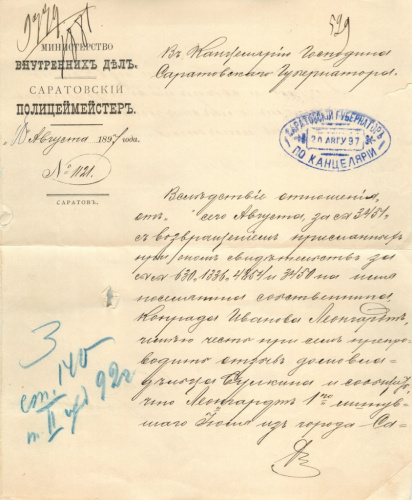 529
МИНИСТЕРСТВО
ВНУТРЕННИХЪ ДѢЛЪ.
САРАТОВСКІЙ
ПОЛИЦЕЙМЕЙСТЕРЪ.
Августа 1897 года.
№ 1121.
САРАТОВЪ.
Въ Канцелярію Господина
Саратовскаго Губернатора.
САРАТОВСКІЙ ГУБЕРНАТОРЪ
20 АВГУ 97
ПО КАНЦЕЛЯРІИ
Вслѣдствіе отношенія,
отъ сего Августа, за № 3451,
съ возвращеніемъ присланныхъ
при немъ свидѣтельствъ за
№№ 630, 1336, 4854 и 3450 на имя
поселянина собственника
Конрада Иванова Леонгардтъ,
имѣю честь при семъ препро-
водить отзывъ домовла-
дѣльца Булкина и сообщить,
что Леонгардтъ 1го минув-
шаго Іюля изъ города Са-
3
ст. 140
т. II изд 92 г